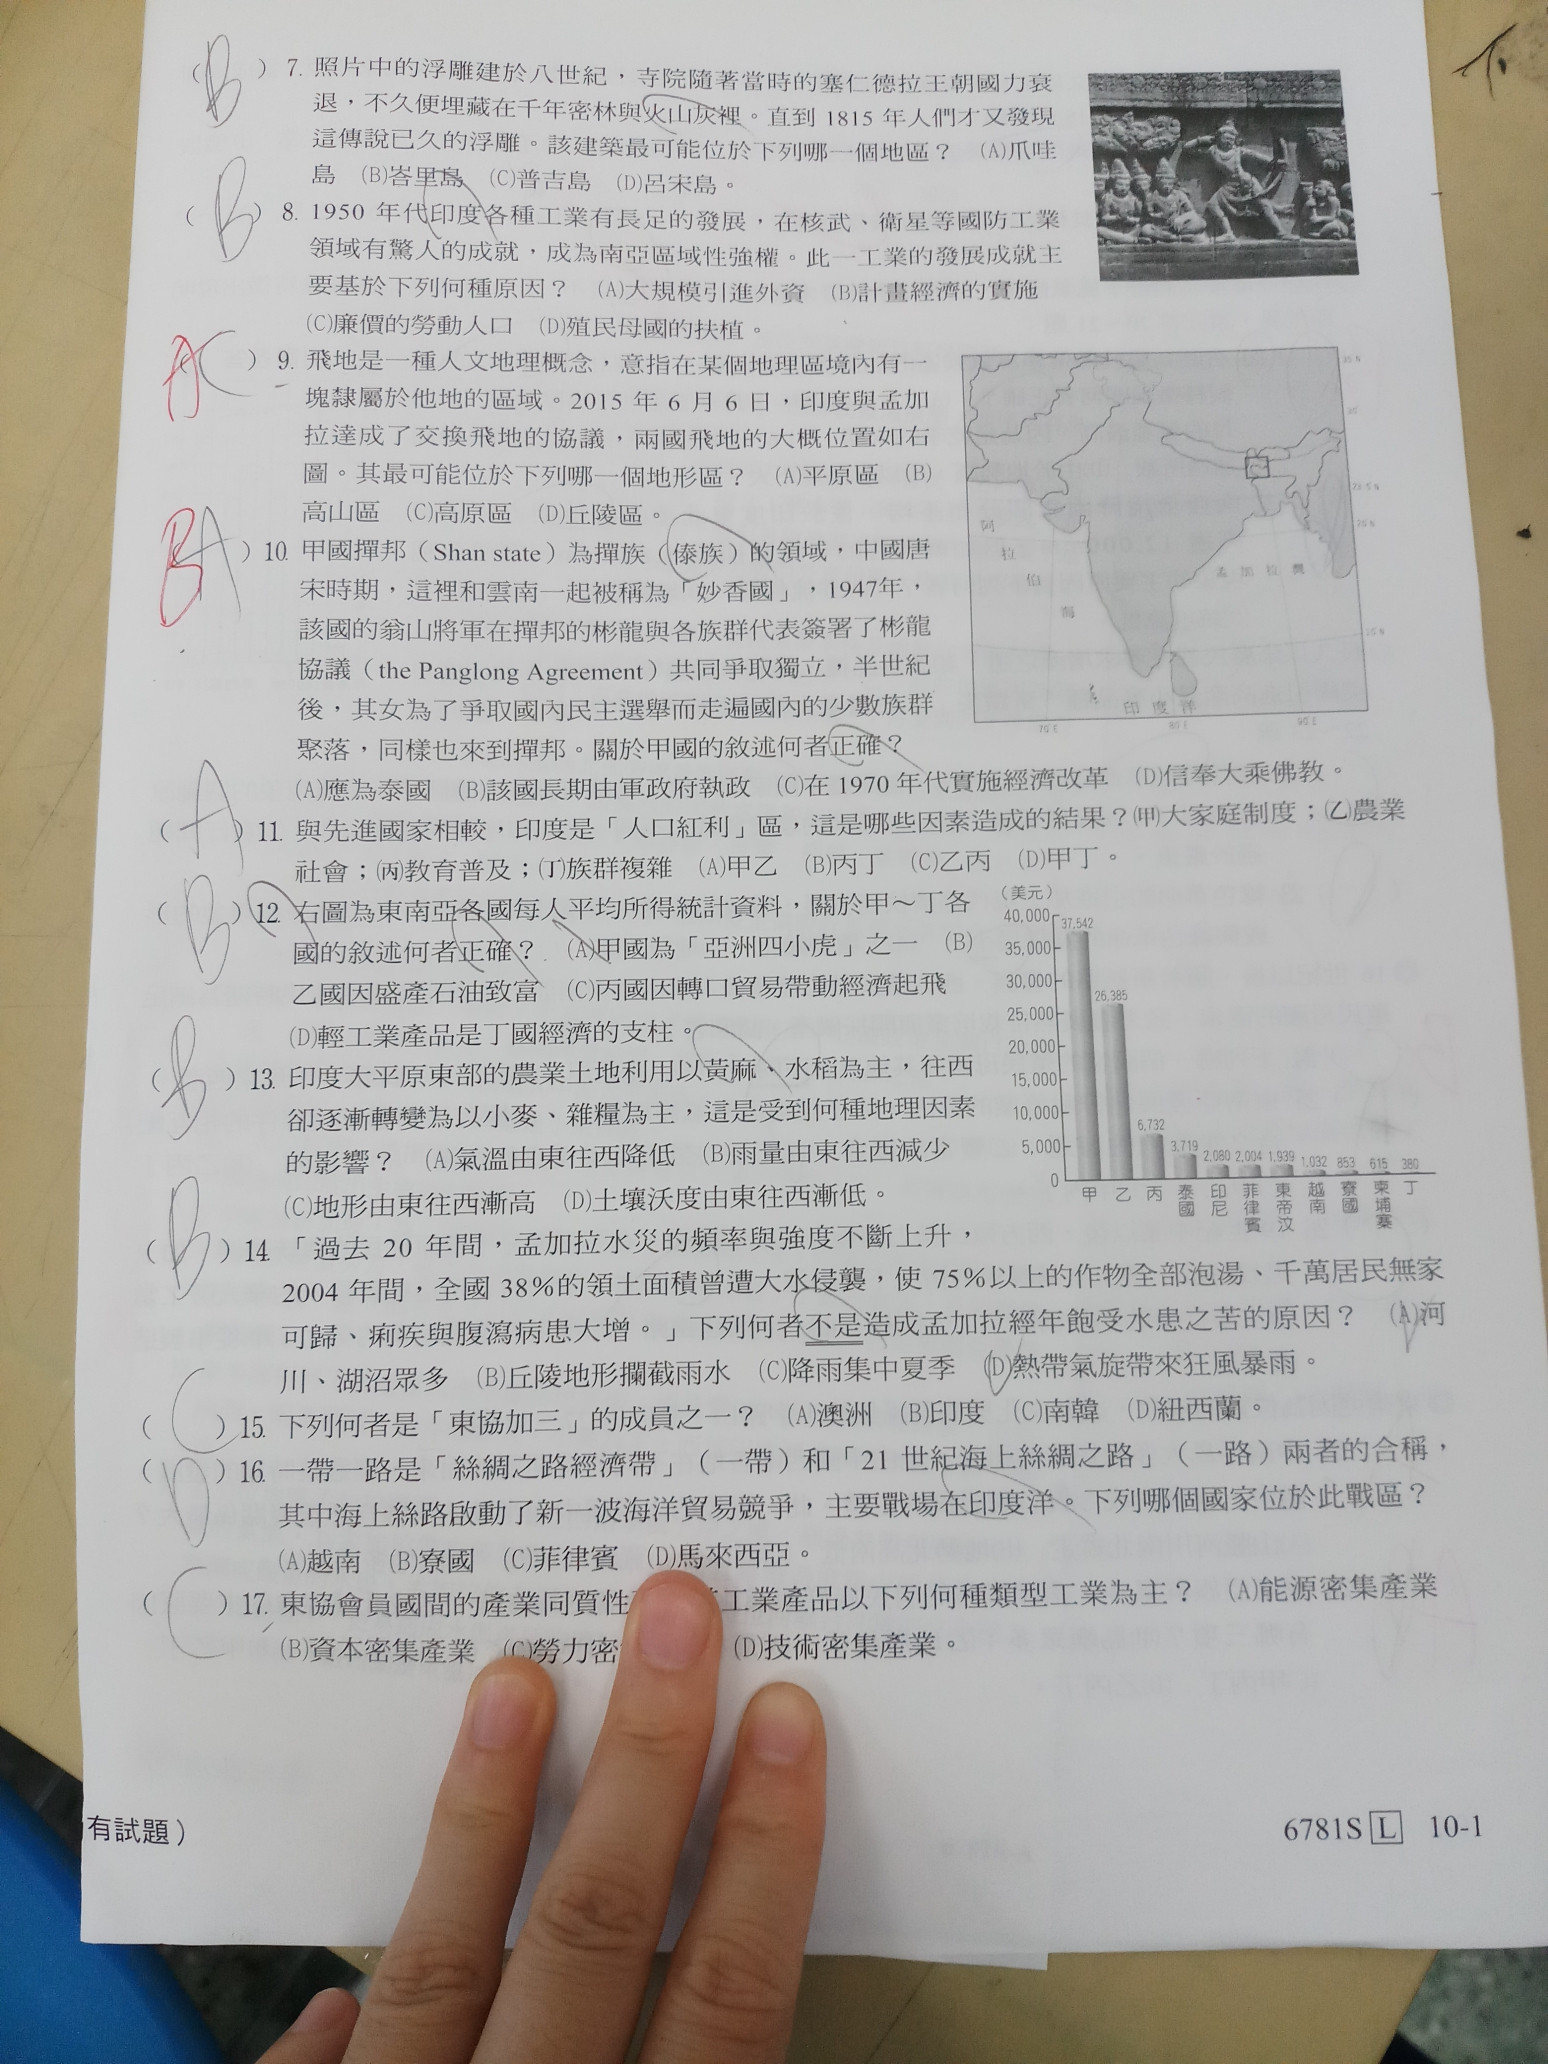 (B) 7. 照片中的浮雕建於八世紀，寺院隨著當時的塞仁德拉王朝國力衰
退，不久便埋藏在千年密林與火山灰裡。直到 1815 年人們才又發現
這傳說已久的浮雕。該建築最可能位於下列哪一個地區？ (A)爪哇
島 (B)峇里島 (C)普吉島 (D)呂宋島。
(B) 8. 1950 年代印度各種工業有長足的發展，在核武、衛星等國防工業
領域有驚人的成就，成為南亞區域性強權。此一工業的發展成就主
要基於下列何種原因？ (A)大規模引進外資 (B)計畫經濟的實施
(C)廉價的勞動人口 (D)殖民母國的扶植。
A( ) 9. 飛地是一種人文地理概念，意指在某個地理區境內有一
塊隸屬於他地的區域。2015 年 6 月 6 日，印度與孟加
拉達成了交換飛地的協議，兩國飛地的大概位置如右
圖。其最可能位於下列哪一個地形區？ (A)平原區 (B)
高山區 (C)高原區 (D)丘陵區。
阿
拉
伯
海
孟加拉灣
印度洋
B A ) 10. 甲國撣邦（Shan state）為撣族（傣族）的領域，中國唐
宋時期，這裡和雲南一起被稱為「妙香國」，1947年，
該國的翁山將軍在撣邦的彬龍與各族群代表簽署了彬龍
協議（the Panglong Agreement）共同爭取獨立，半世紀
後，其女為了爭取國內民主選舉而走遍國內的少數族群
聚落，同樣也來到撣邦。關於甲國的敘述何者正確？
(A)應為泰國 (B)該國長期由軍政府執政 (C)在 1970 年代實施經濟改革 (D)信奉大乘佛教。
(A) 11. 與先進國家相較，印度是「人口紅利」區，這是哪些因素造成的結果？(甲)大家庭制度；(乙)農業
社會；(丙)教育普及；(丁)族群複雜 (A)甲乙 (B)丙丁 (C)乙丙 (D)甲丁。
(B) 12. 右圖為東南亞各國每人平均所得統計資料，關於甲～丁各
國的敘述何者正確？ (A)甲國為「亞洲四小虎」之一 (B)
乙國因盛產石油致富 (C)丙國因轉口貿易帶動經濟起飛
(D)輕工業產品是丁國經濟的支柱。
（美元）
40,000
35,000
30,000
25,000
20,000
15,000
10,000
5,000
0
37,542 26,385 6,732 3,719 2,080 2,004 1,939 1,032 853 615 380
甲 乙 丙 泰國 印尼 菲律賓 東帝汶 越南 寮國 柬埔寨 丁
(B) 13. 印度大平原東部的農業土地利用以黃麻、水稻為主，往西
卻逐漸轉變為以小麥、雜糧為主，這是受到何種地理因素
的影響？ (A)氣溫由東往西降低 (B)雨量由東往西減少
(C)地形由東往西漸高 (D)土壤沃度由東往西漸低。
(B) 14. 「過去 20 年間，孟加拉水災的頻率與強度不斷上升，
2004 年間，全國 38%的領土面積曾遭大水侵襲，使 75%以上的作物全部泡湯、千萬居民無家
可歸、痢疾與腹瀉病患大增。」下列何者不是造成孟加拉經年飽受水患之苦的原因？ (A)河
川、湖沼眾多 (B)丘陵地形攔截雨水 (C)降雨集中夏季 (D)熱帶氣旋帶來狂風暴雨。
(C) 15. 下列何者是「東協加三」的成員之一？ (A)澳洲 (B)印度 (C)南韓 (D)紐西蘭。
(D) 16. 一帶一路是「絲綢之路經濟帶」（一帶）和「21 世紀海上絲綢之路」（一路）兩者的合稱，
其中海上絲路啟動了新一波海洋貿易競爭，主要戰場在印度洋。下列哪個國家位於此戰區？
(A)越南 (B)寮國 (C)菲律賓 (D)馬來西亞。
(C) 17. 東協會員國間的產業同質性 工業產品以下列何種類型工業為主？ (A)能源密集產業
(B)資本密集產業 (C)勞力密 (D)技術密集產業。
有試題）
6781S L 10-1